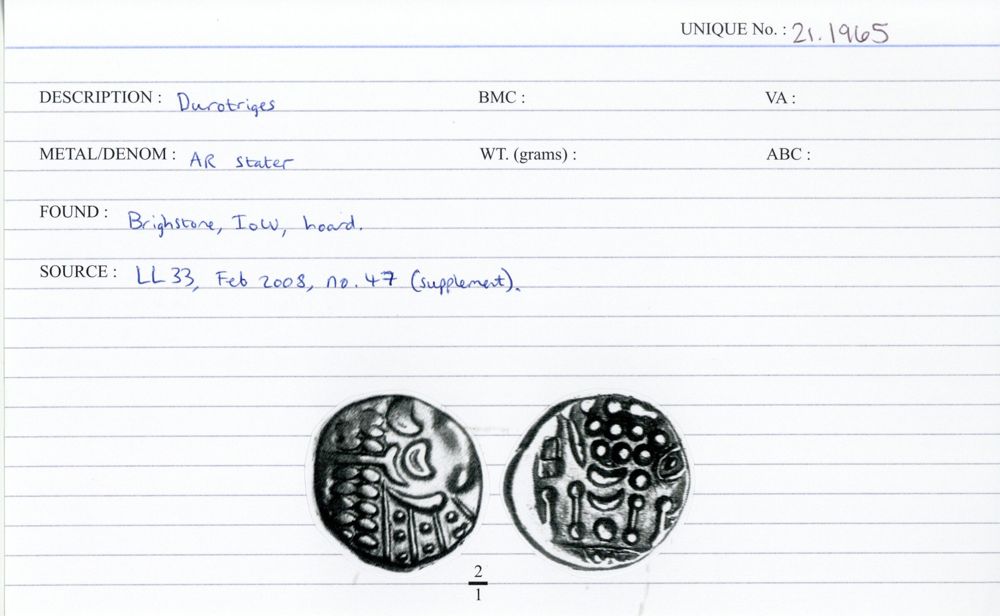 UNIQUE No. : 21.1965
DESCRIPTION : Durotriges BMC : VA :
METAL/DENOM : AR stater WT. (grams) : ABC :
FOUND : Brighstone, IoW, hoard.
SOURCE : LL 33, Feb 2008, no. 47 (supplement).
2
1